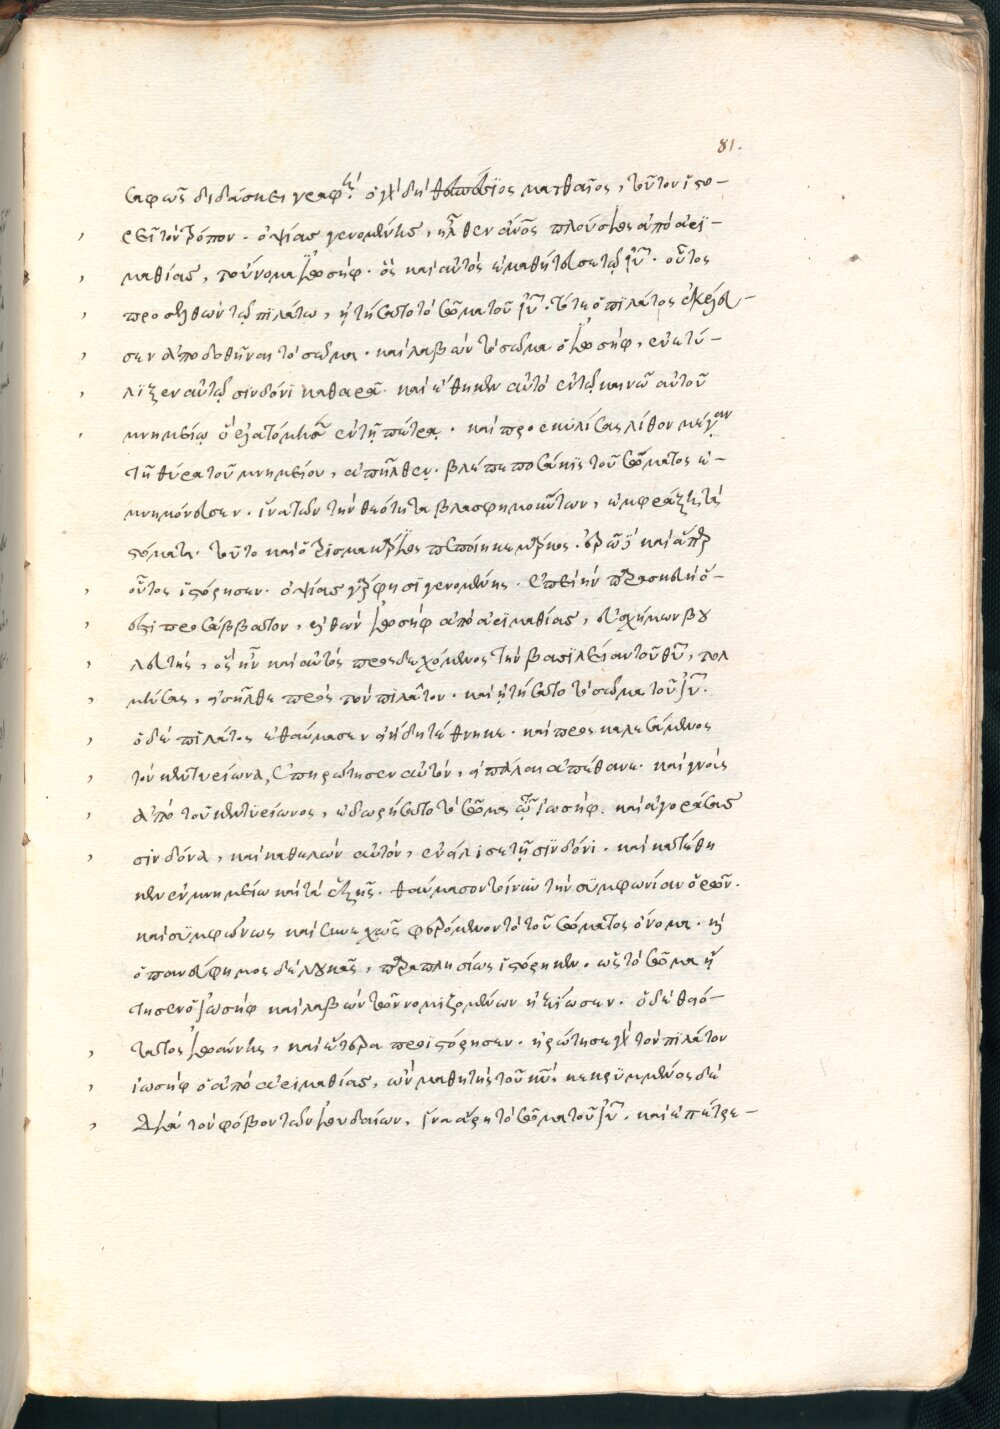 81.
σαφῶς διδάσκει γραφή. ὁ γὰρ δὴ θεσπέσιος ματθαῖος, τοῦτον ἱστο-
ρεῖ τὸν τρόπον. ὀψίας γενομένης, ἦλθεν ἄνος πλούσιος ἀπὸ ἀρι-
μαθίας, τοὔνομα ἰωσήφ. ὃς καὶ αὐτὸς ἐμαθήτευσε τῷ ιῦ. οὗτος
προσελθὼν τῷ πιλάτω, ἠτήσατο τὸ σῶμα τοῦ ιῦ. τότε ὁ πιλάτος ἐκέλευ-
σεν ἀποδοθῆναι τὸ σῶμα. καὶ λαβὼν τὸ σῶμα ὁ ἰωσήφ, ἐνετύ-
λιξεν αὐτῷ σινδόνι καθαρᾶ. καὶ ἔθηκεν αὐτὸ ἐν τῷ καινῶ αὐτοῦ
μνημείῳ ὃ ἐλατόμησεν ἐν τῇ πέτρᾳ. καὶ προσκυλίσας λίθον μέγαν
τῆ θύρα τοῦ μνημείου, ἀπῆλθεν. βλέπε ποσάκις τοῦ σώματος ἐ-
μνημόνευσεν. ἵνα τῶν τὴν θεότητα βλασφημούντων, ἐμφράξῃ τὰ
στόματα. τοῦτο καὶ ὁ τρισμακάριος πεποίηκε μάρκος.
οὗτος ἱστόρησεν. ὀψίας γάρ φησι γενομένης. ἐπεὶ ἦν παρασκευὴ ὅ-
ἐστι προσάββατον, ἐλθὼν ἰωσὴφ ἀπὸ ἀριμαθίας, εὐσχήμων βου
λευτής, ὃς ἦν καὶ αὐτὸς προσδεχόμενος τὴν βασιλείαν τοῦ θῦ, τολ
μήσας, εἰσῆλθε πρὸς τὸν πιλᾶτον. καὶ ἠτήσατο τὸ σῶμα τοῦ ιῦ.
ὁ δὲ πιλάτος ἐθαύμασεν εἰ ἤδη τέθνηκε. καὶ προσκαλεσάμενος
τὸν κεντυρίωνα, ἐπηρώτησεν αὐτόν, εἰ πάλαι ἀπέθανε. καὶ γνοὺς
ἀπὸ τοῦ κεντυρίωνος, ἐδωρήσατο τὸ σῶμα τῶ ἰωσήφ. καὶ ἀγοράσας
σινδόνα, καὶ καθελὼν αὐτόν, ἐνείλισε τῇ σινδόνι. καὶ κατέθη
κεν ἐν μνημείω καὶ τὰ ἑξῆς. θαύμασον τοίνυν τὴν συμφωνίαν ὁρῶν.
καὶ συμφώνως καὶ συνεχῶς φερόμενον τὸ τοῦ σώματος ὄνομα. καὶ
ὁ πανεύφημος δὲ λουκᾶς, παραπλησίως ἱστόρηκεν. ὡς τὸ σῶμα ἤ
τησεν ὁ ἰωσὴφ καὶ λαβὼν τῶν νομιζομένων ἠξίωσεν. ὁ δὲ θειό-
τατος ἰωάννης, καὶ ἕτερα προσιστόρησεν. ἠρώτησε γὰρ τὸν πιλάτον
ἰωσὴφ ὁ ἀπὸ ἀριμαθίας, ὢν μαθητὴς τοῦ ιῦ, κεκρυμμένος δὲ
διὰ τὸν φόβον τῶν ἰουδαίων, ἵνα ἄρη τὸ σῶμα τοῦ ιῦ. καὶ ἐπέτρε-